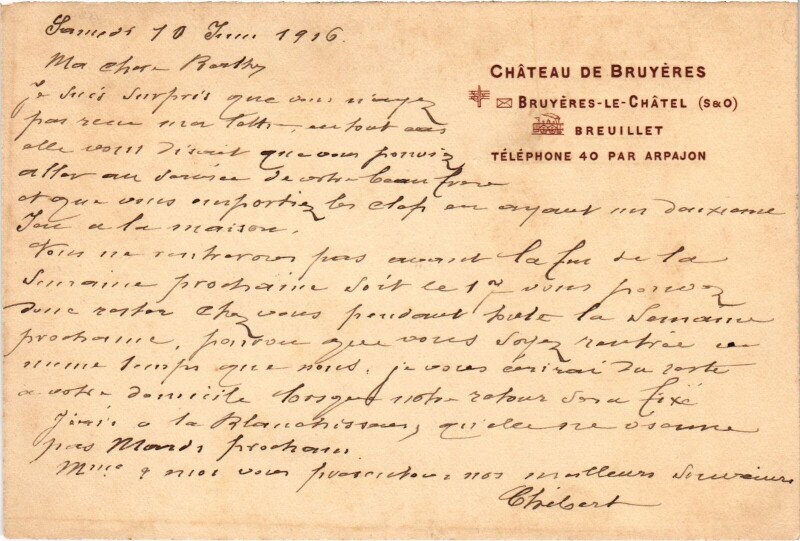 Samedi 10 Juin 1916.
Ma chere Berthe
CHÂTEAU DE BRUYÈRES
BRUYÈRES-LE-CHÂTEL (S&O)
BREUILLET
TÉLÉPHONE 40 PAR ARPAJON
Je suis surpris que vous n'ayez
pas recu ma lettre, en tout cas
elle vous disait que vous pouviez
aller au service de votre beau frere
et que vous emportiez les clefs en ayant un deuxieme
Jeu a la maison.
Nous ne rentrerons pas avant la fin de la
semaine prochaine soit le 17 vous pouvez
donc rester chez vous pendant toute la semaine
prochaine, pourvu que vous soyez rentrée en
meme temps que nous. je vous ecrirai du reste
a votre domicile lorsque notre retour sera fixé
a la Blanchisseuse, qu'elle ne vienne
pas Mardi prochain
Mme & moi vous nos meilleurs souvenirs